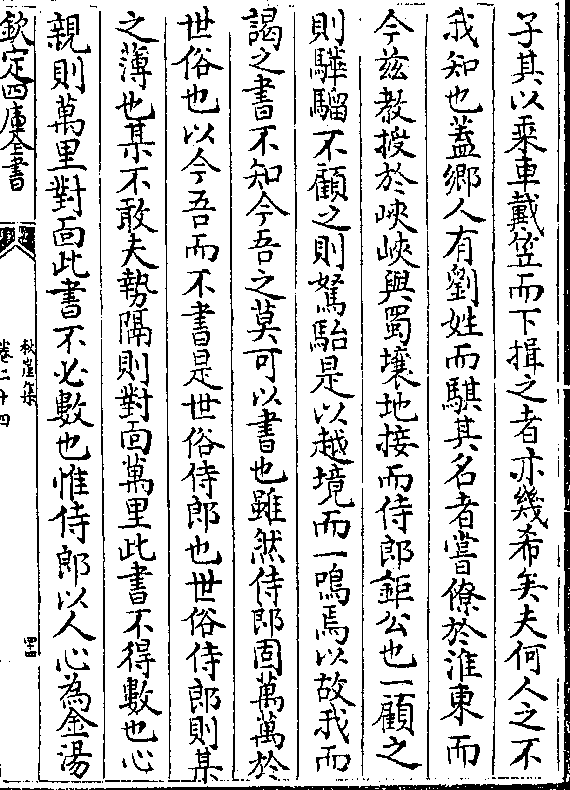 子其以乘車戴笠而下揖之者亦幾希矣夫何人之不
我知也蓋鄉人有劉姓而騏其名者嘗僚於淮東而
今兹教授於峽峽與蜀壤地接而侍郎鉅公也一顧之
則驊騮不顧之則駑駘是以越境而一鳴焉以故我而
謁之書不知今吾之莫可以書也雖然侍郎固萬萬於
世俗也以今吾而不書是世俗侍郎也世俗侍郎則某
之薄也某不敢夫勢隔則對面萬里此書不得數也心
親則萬里對面此書不必數也惟侍郎以人心為金湯
欽定四庫全書
秋崖集
卷二十四